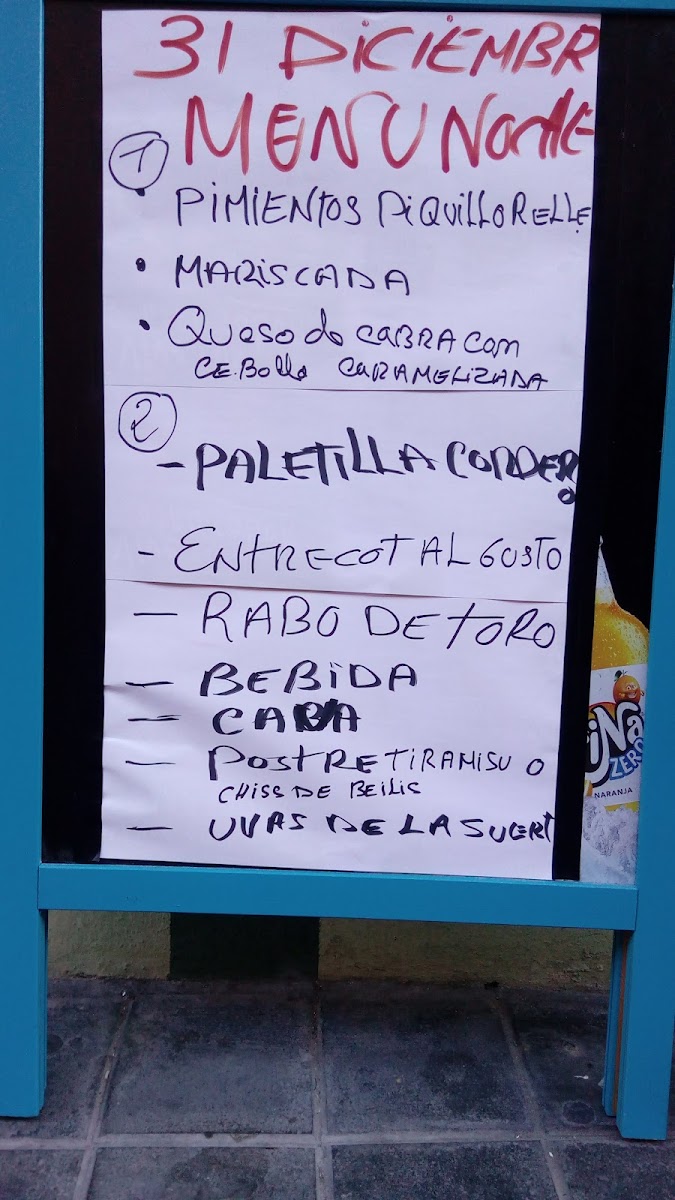 31 DICIEMBR
MENU NocHE
1
• PIMIENTOS PiQUILLO RELLE
• MARISCADA
• Queso de CABRA com
CE.Bolla CARAMELIZADA
2
- PALETILLA CORDER
O
- ENTRECOT AL GUSTO
- RABO DE TORO
- BEBIDA
- CABA
- POSTRE TIRAMISU O
CHISS DE BEILIS
- UVAS DE LA SUERT
iNa
ZERO
NARANJA